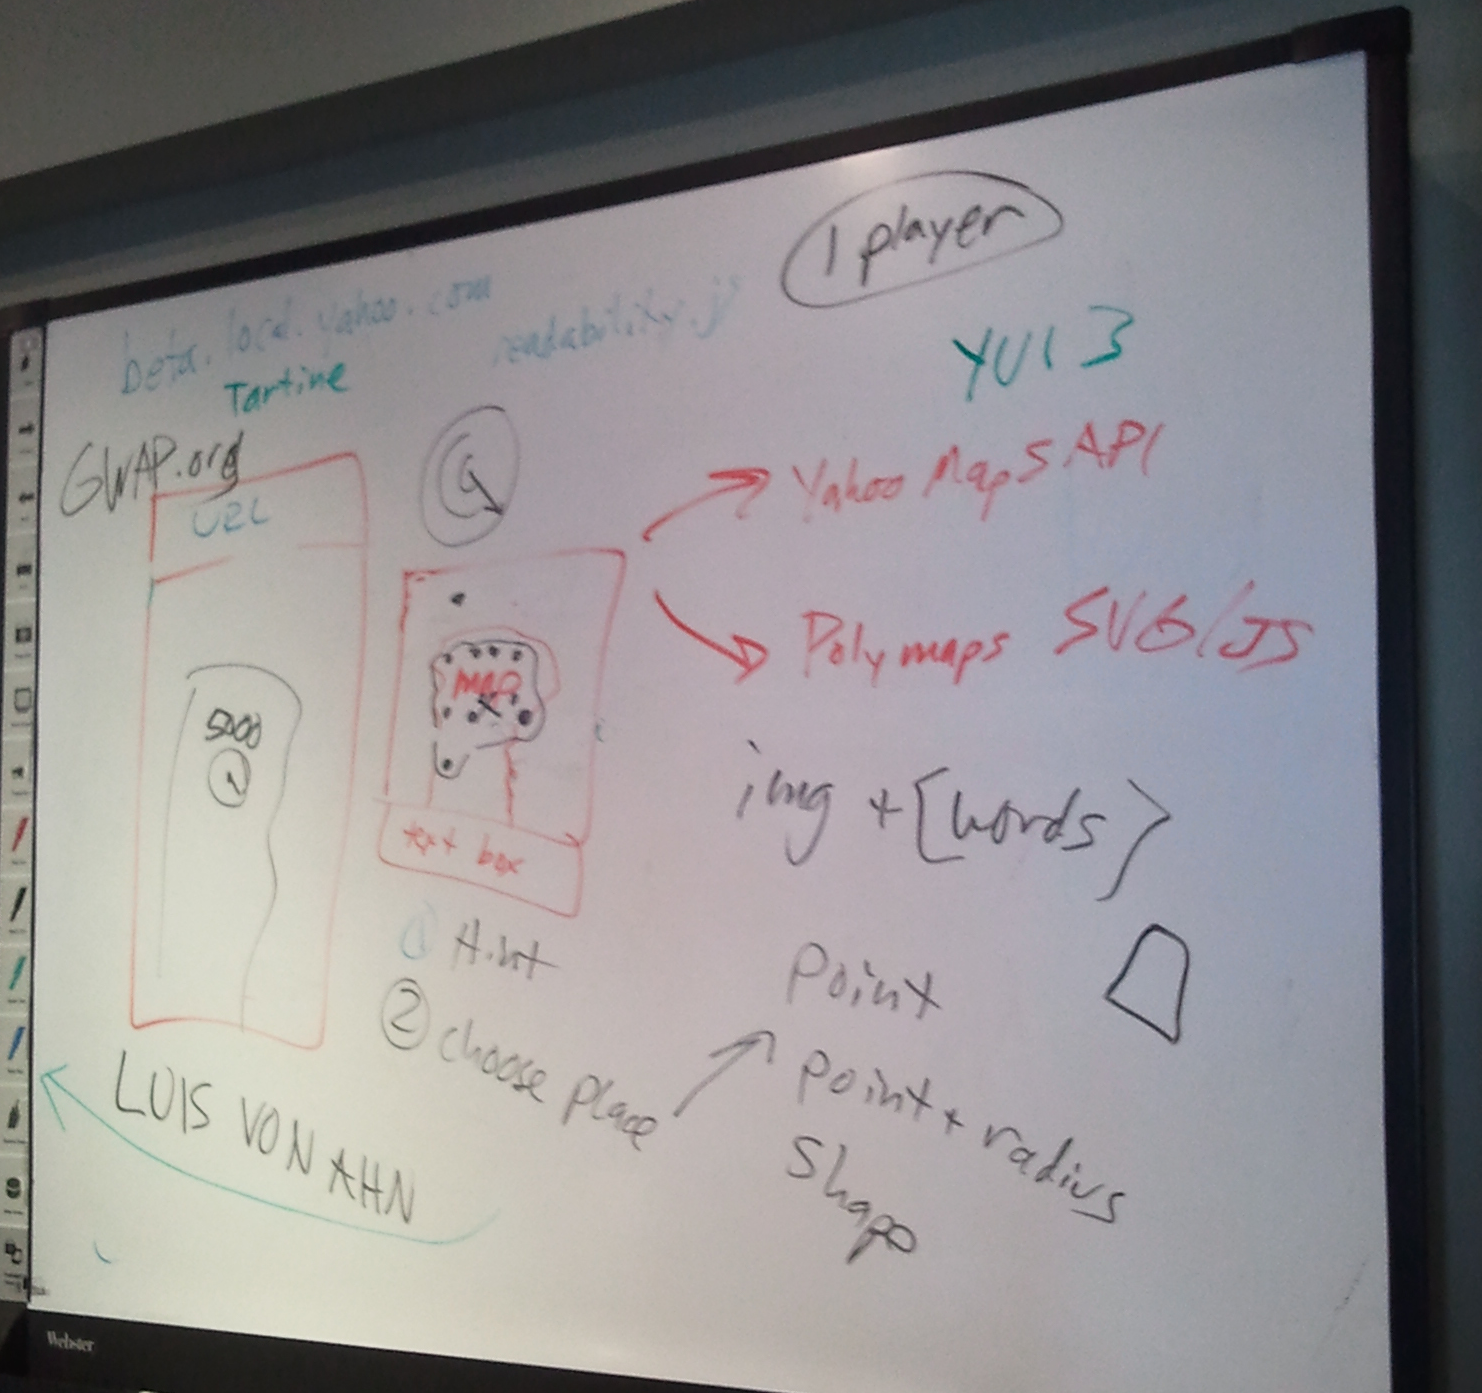 1 player
beta.local.yahoo.com
readability.js
Tartine
YUI 3
GWAP.org
URL
Yahoo Maps API
Polymaps SVG/JS
MAP
5000
text box
img + {words}
① Hint
② choose place
point
point + radius
shape
LUIS VON AHN
Webster